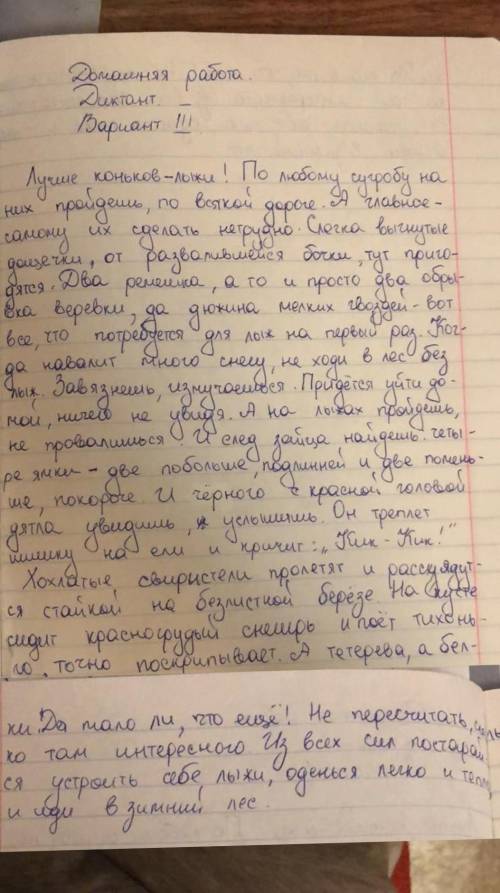 Домашняя работа.
Диктант.
Вариант III
Лучше коньков-лыжи! По любому сугробу на
них пройдешь, по всякой дороге. А главное-
самому их сделать нетрудно. Слегка выгнутые
дощечки, от развалившейся бочки, тут приго-
дятся. Два ремешка, а то и просто два обры-
вка веревки, да дюжина мелких гвоздей-вот
все, что потребуется для лыж на первый раз. Ког-
да навалит много снегу, не ходи в лес без
лыж. Завязнешь, измучаешься. Придётся уйти до-
мой, ничего не увидя. А на лыжах пройдешь,
не провалишься. И след зайца найдешь: четы-
ре ямки - две побольше, подлинней и две помень-
ше, покороче. И чёрного с красной головой
дятла увидишь, услышишь. Он треплет
шишку на ели и кричит: „Кик-Кик!"
Хохлатые свиристели пролетят и рассядут-
ся стайкой на безлистной берёзе. На кусте
сидит красногрудый снегирь и поёт тихонь-
го, точно поскрипывает. А тетерева, а бел-
ки. Да мало ли, что ещё! Не пересчитать,
ко там интересного Из всех сил постарай
ся устроить себе лыжи, оденься легко и тепло,
и иди в зимний лес.